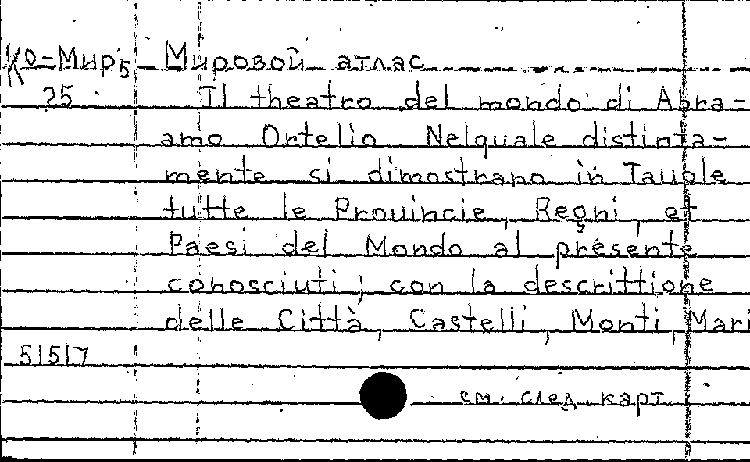 Ко-Мир5 Мировой атлас
25 Il theatro del mondo di Abra-
amo Ortelio. Nelquale distinta-
mente si dimostrano in Tauole
tutte le Prouincie, Regni, et
Paesi del Mondo al presente
conosciuti; con la descrittione
delle Città, Castelli, Monti, Mari
5157
см. след. карт.